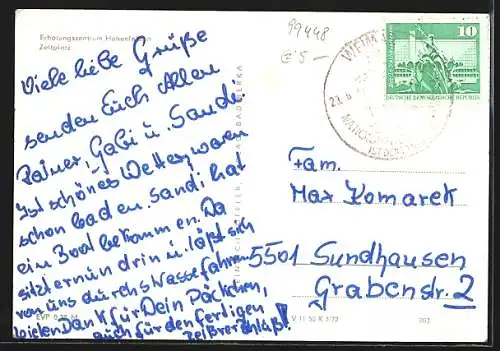 Erholungszentrum Hohenfelden
Zeltplatz
99448
€ 5-
Viele liebe Grüße
senden Euch Allen
Rainer, Gabi u. Sandi.
Ist schönes Wetter, waren
schon baden. Sandi hat
ein Boot bekommen. Da
sitzt er nun drin u. läßt sich
von uns durchs Wasser fahren.
Vielen Dank für Dein Päckchen,
auch für den fertigen
Reißverschluß!
EVP 0,20 M
V 11 50 K 1/72
BAD BERKA
WEIM
10
DEUTSCHE DEMOKRATISCHE REPUBLIK
Fam.
Max Komarek
5501 Sundhausen
Grabenstr. 2